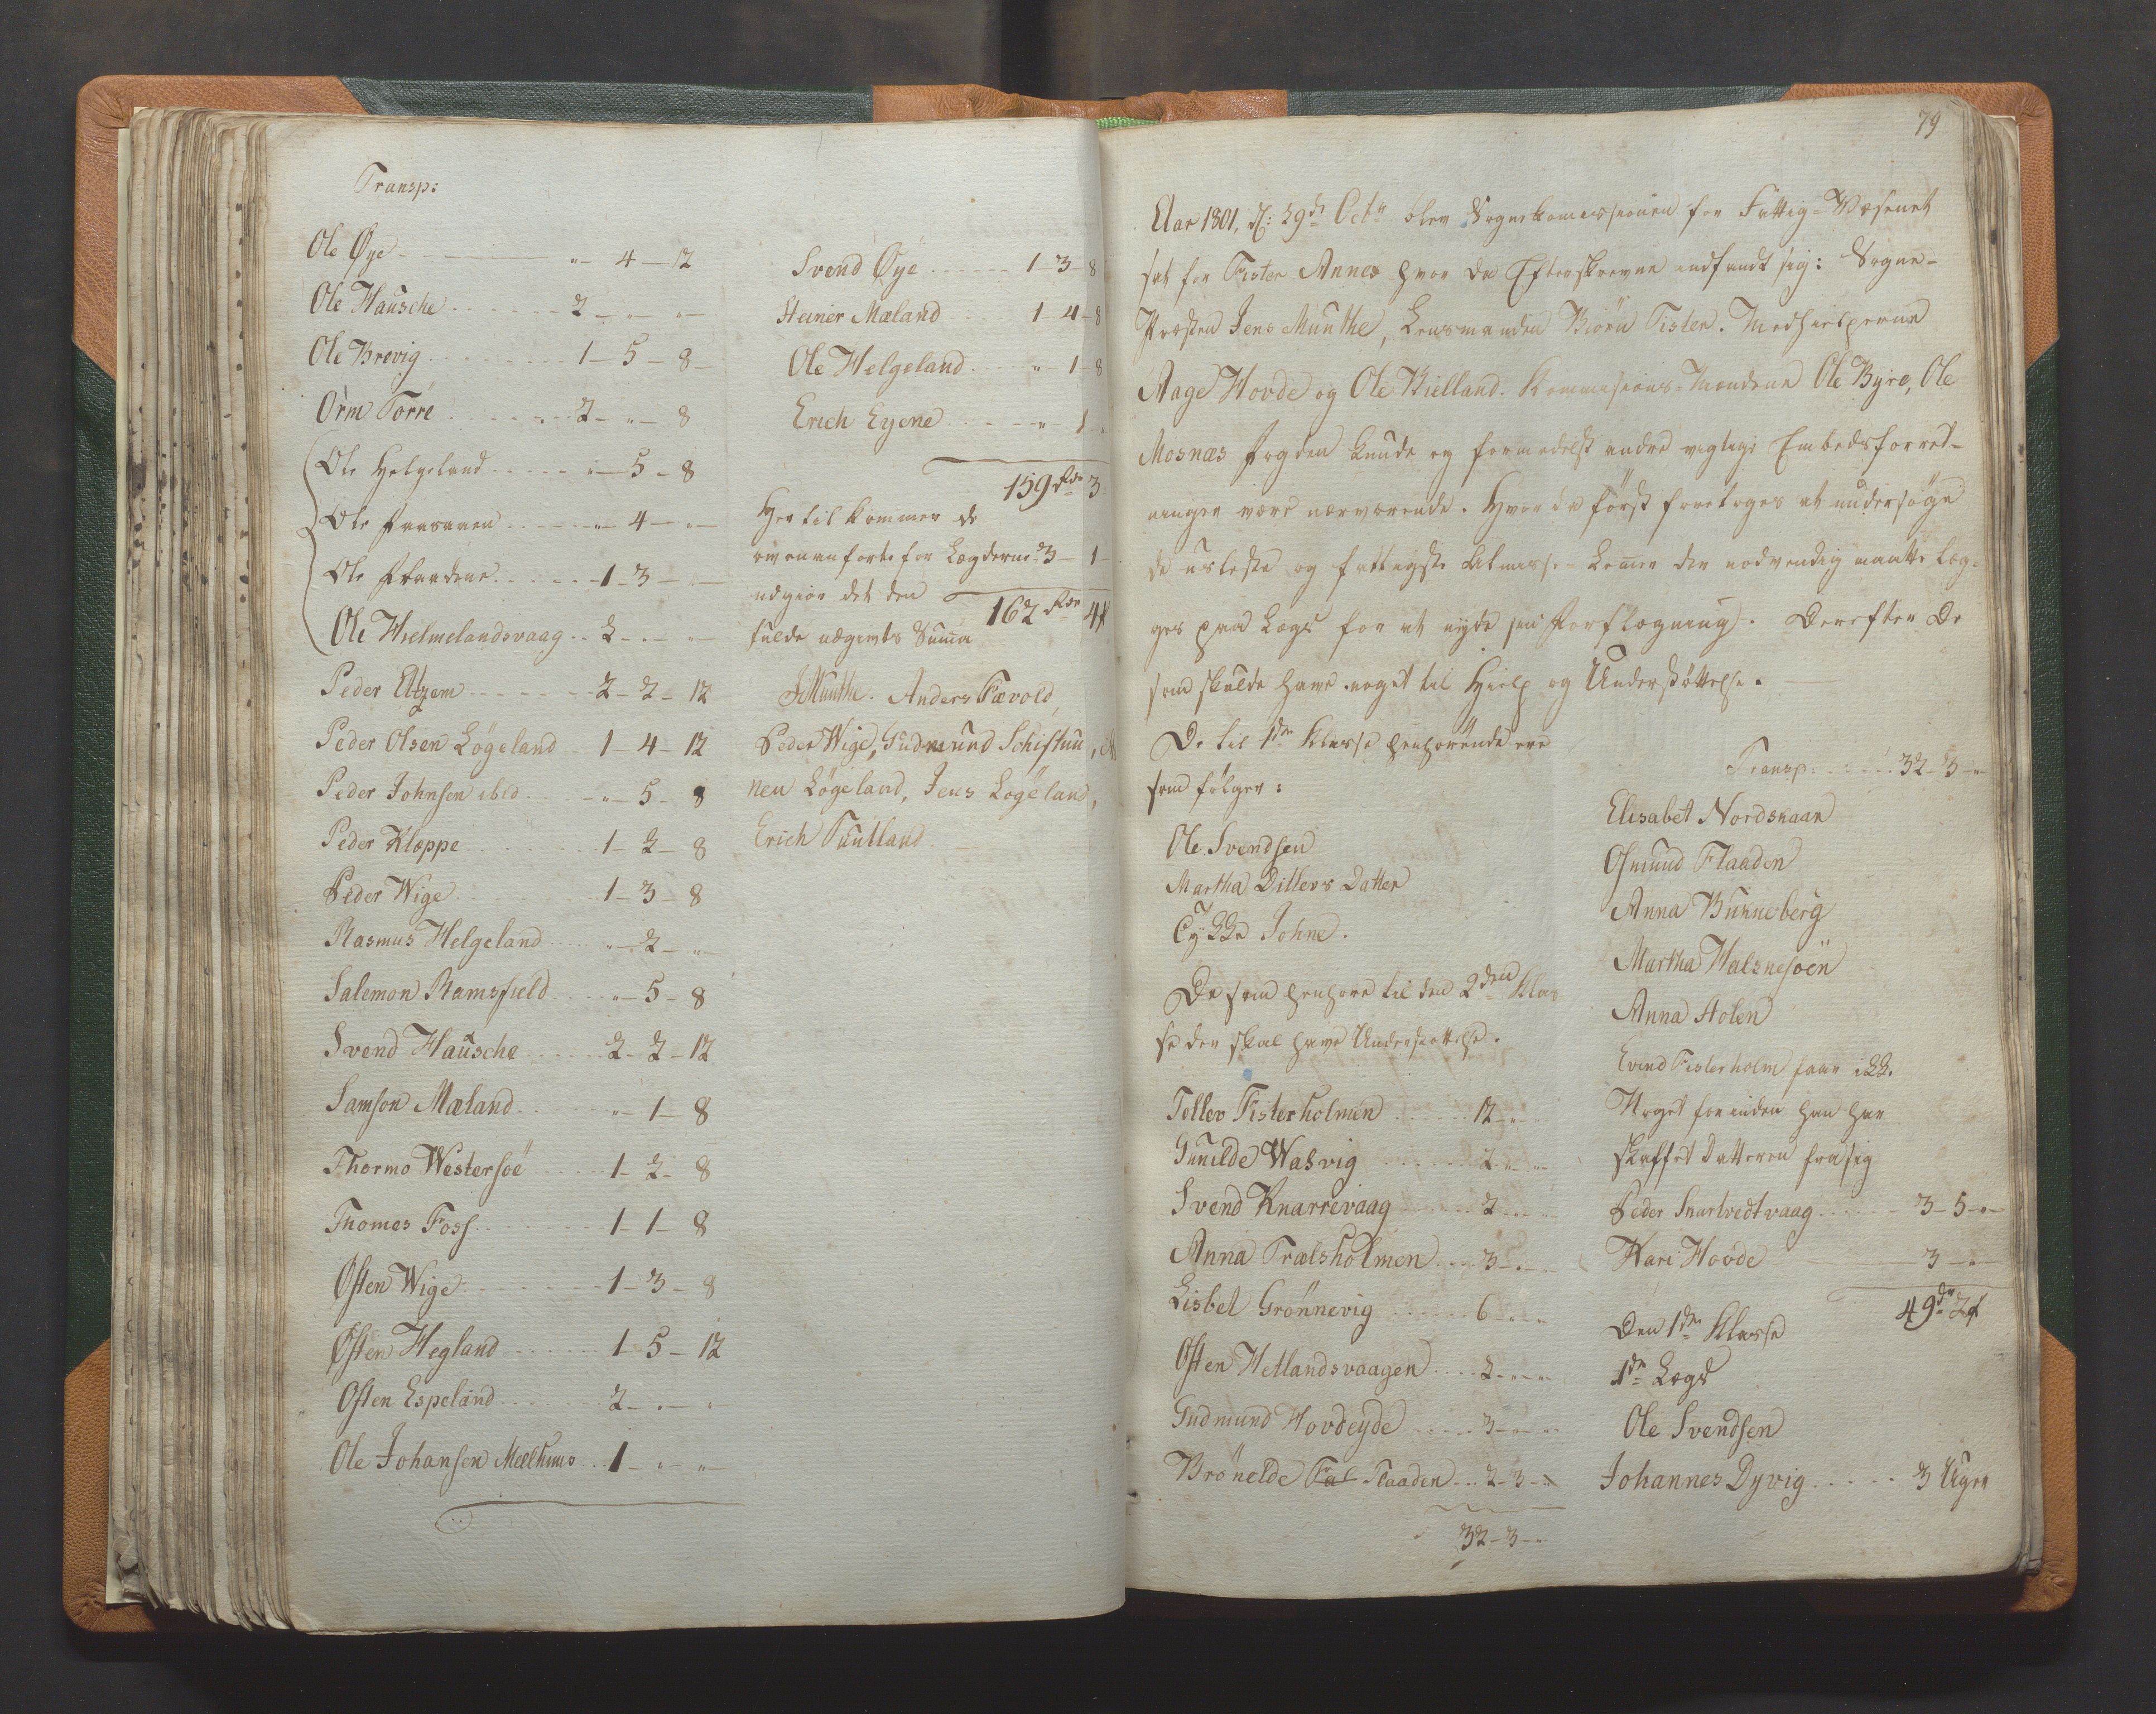 Transp:
Ole Øye - - - " - 4 - 12
Ole Hausche - - - 2 - " - "
Ole Brevig - - - 1 - 5 - 8
Orm Torre - - - 2 - " - 8
Ole Helgeland - - - " - 5 - 8
Ole - - - " - 4 - "
Ole - - - 1 - 3 - "
Ole Hielmelandsvaag - - 2 - " - "
Peder - - - 2 - 2 - 12
Peder Olsen Løgeland - 1 - 4 - 12
Peder Johnsen ibid - - - " - 5 - 8
Peder Kleppe - - - 1 - 2 - 8
Peder Wige - - - 1 - 3 - 8
Rasmus Helgeland - - - " - 2 - "
Salemon Ramsfield - - - " - 5 - 8
Svend Hausche - - - 2 - 2 - 12
Samson Mæland - - - " - 1 - 8
Thormo Westersøe - - - 1 - 2 - 8
Thomes Foss - - - 1 - 1 - 8
Østen Wige - - - 1 - 3 - 8
Østen Hegland - - - 1 - 5 - 12
Østen Espeland - - - 2 - " - "
Ole Johansen - - 1 - " - "
Svend Øye - - - 1 - 3 - 8
Steiner Mæland - - - 1 - 4 - 8
Ole Helgeland - - - " - 1 - 8
Erich Eyene - - - " - 1 -
159 Rdr 3
Her til kommer de
ovenanførte for Lægderne 3 - 1 -
udgiør det den
fulde udgivts Summa 162 Rdr 4
JMunthe. Anders Tævold,
Peder Wige, Gudmund Schiftun,
nen Løgeland, Jens Løgeland,
Erich Tuntland
79
Aar 1801, d: 29de Octbr blev Sognekomissionen for Fattig-Væsenet
sat for Fister Annex hvor da Efterskrevne indfandt sig: Sogne-
Præsten Jens Munthe, Lensmanden Biørn Fister. Medhielperne
Aage Hovde og Ole Kielland. Kommisions-Mændene Ole Byre, Ole
Mosnæs Fogden kunde ey formedelst andre vigtige Embedsforret-
ninger være nærværende. Hvor da først foretoges at undersøge
de usleste og fattigste Almisse-Lemmer der nødvendig maatte læg-
ges paa Lægd for at nyde sin Forflægning. Derefter De
som skulde have noget til Hielp og Understøttelse.
De til 1ste Klasse henhørende ere
som følger:
Ole Svendsen
Martha Ditlevs Datter
Tykke Johne.
De som henhøre til den 2den Klas
se der skal have Understøttelse.
Tollev Fisterholmen - - - 12 - " - "
Gunilde Wasvig - - - 2 - " - "
Svend Knarrevaag - - - 2 - " - "
Anna Trælsholmen - - - 3 - " - "
Lisbet Grønnevig - - - 6 - " - "
Østen Hetlandsvaagen - - - 2 - " - "
Gudmund Hovdeyde - - - 3 - " - "
Brønelde Flaaden - - 2 - 3 - "
32 - 3 - "
Transp - - - 32 - 3 - "
Elisabet Nordskaar
Osmund Flaaden
Anna Bunneberg
Martha Halsnesøen
Anna Holen
Evind Fisterholm faar ikke
Noget forinden han har
skaffet Datteren fra sig
Peder Snartvedtvaag - - - 3 - 5 - "
Kari Hovde - - - 3 - "
49 dr 2
Den 1ste Klasse
1ste Lægd
Ole Svendsen
Johannes Dyvig - - - 3 Uger